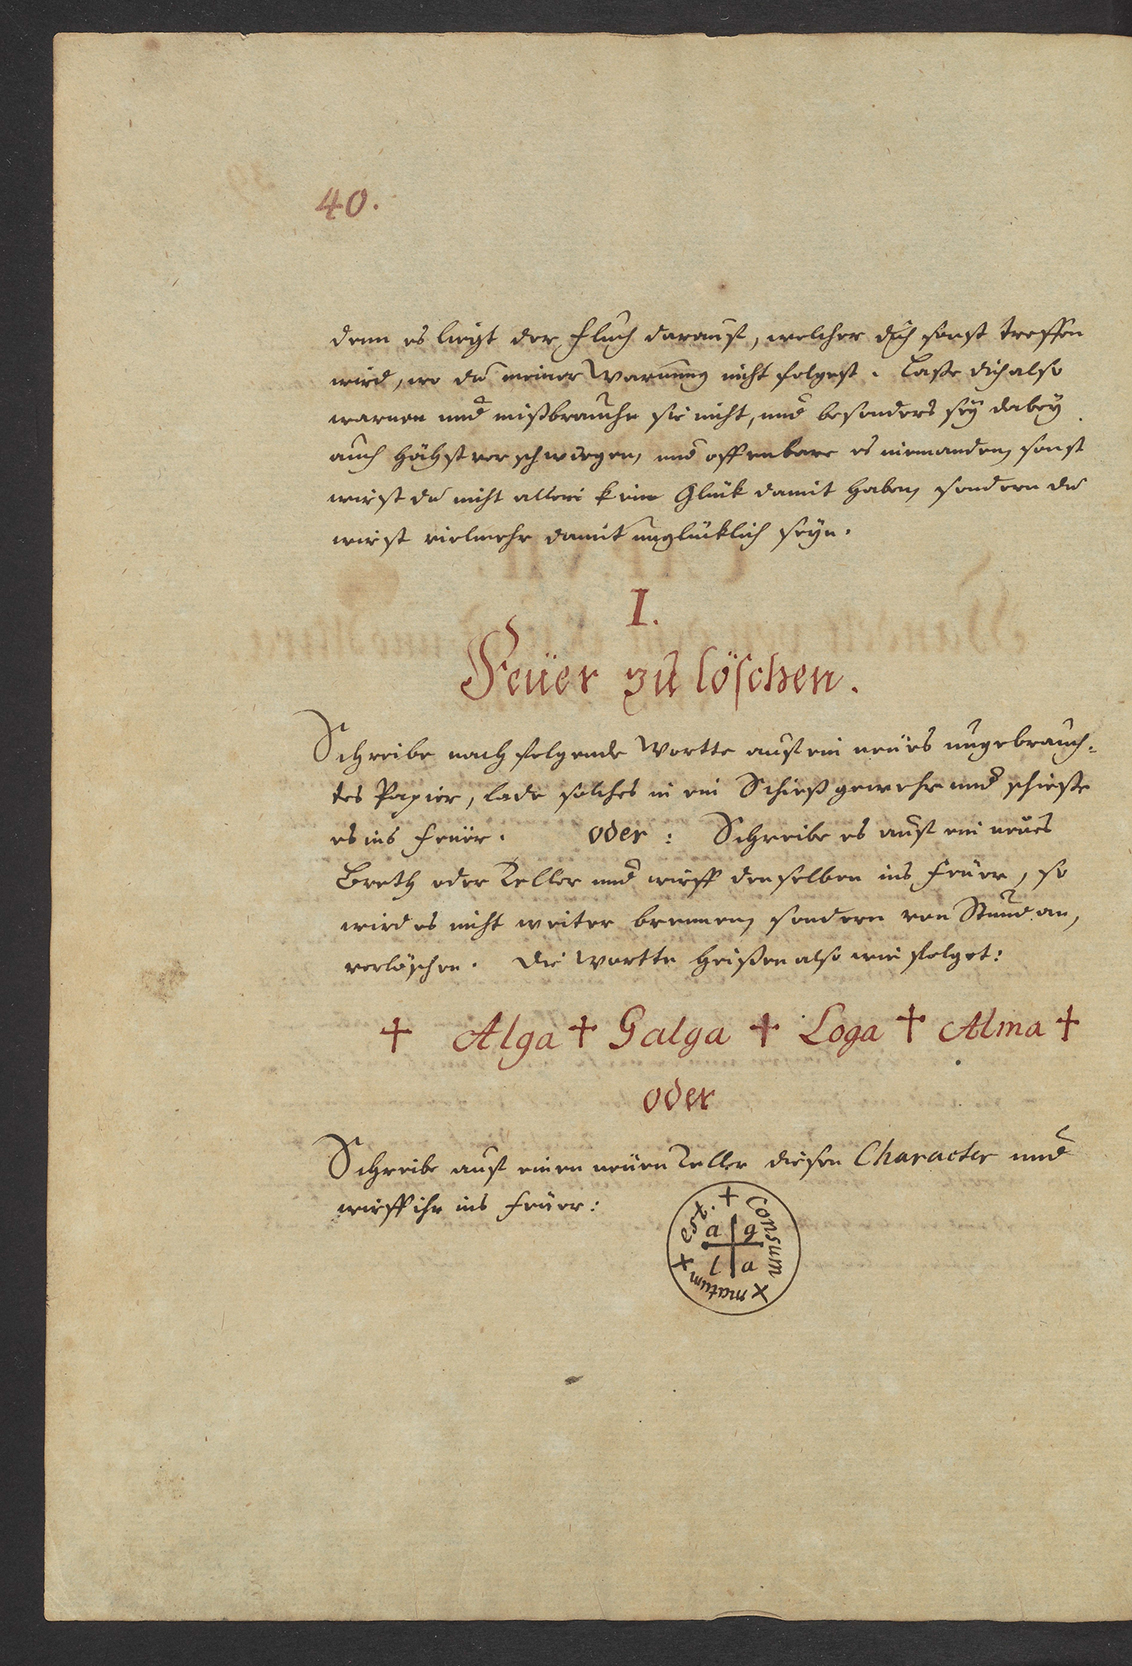 40.
denn es liegt der Fluch darauf, welcher dich sonst treffen
wird, wo du meiner Warnung nicht folgest. Laße dich also
warnen und mißbrauche sie nicht, und besonders sey dabey
auch höchst verschwiegen, und offenbare es niemanden, sonst
wirst du nicht allein kein Glük damit haben, sondern du
wirst vielmehr damit unglücklich seyn.
I.
Feüer zu löschen.
Schreibe nachfolgende Wortte auf ein neües ungebrauch=
tes Papier, lade solches in ein Schießgewehr und schieße
es ins Feüer. oder: Schreibe es auf ein neües
Breth oder Teller und wirff denselben ins Feüer, so
wird es nicht weiter brennen, sondern von Stund an,
verlöschen. Die Wortte heißen also wie folget:
✝ Alga ✝ Galga ✝ Loga ✝ Alma ✝
oder
Schreibe auf einen neüen Teller diesen Character und
wirff ihn ins Feüer:
+ Consum + matum + est.
a g
l a